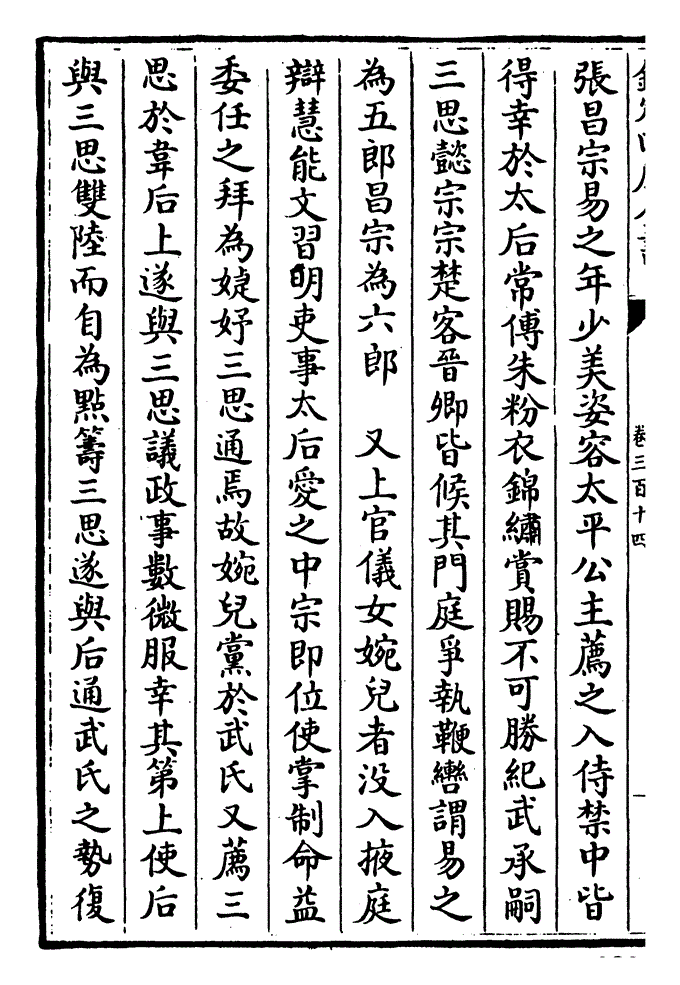 卷三百十四
張昌宗易之年少美姿容太平公主薦之入侍禁中皆
得幸於太后常傅朱粉衣錦繡賞賜不可勝紀武承嗣
三思懿宗宗楚客晉卿皆候其門庭爭執鞭轡謂易之
為五郎昌宗為六郎　又上官儀女婉兒者没入掖庭
辯慧能文習明吏事太后愛之中宗即位使掌制命益
委任之拜為婕妤三思通焉故婉兒黨於武氏又薦三
思於韋后上遂與三思議政事數微服幸其第上使后
與三思雙陸而自為點籌三思遂與后通武氏之勢復